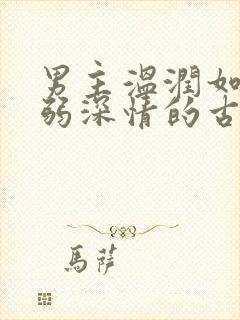 男主溫潤如
弱深情的古
馬薩